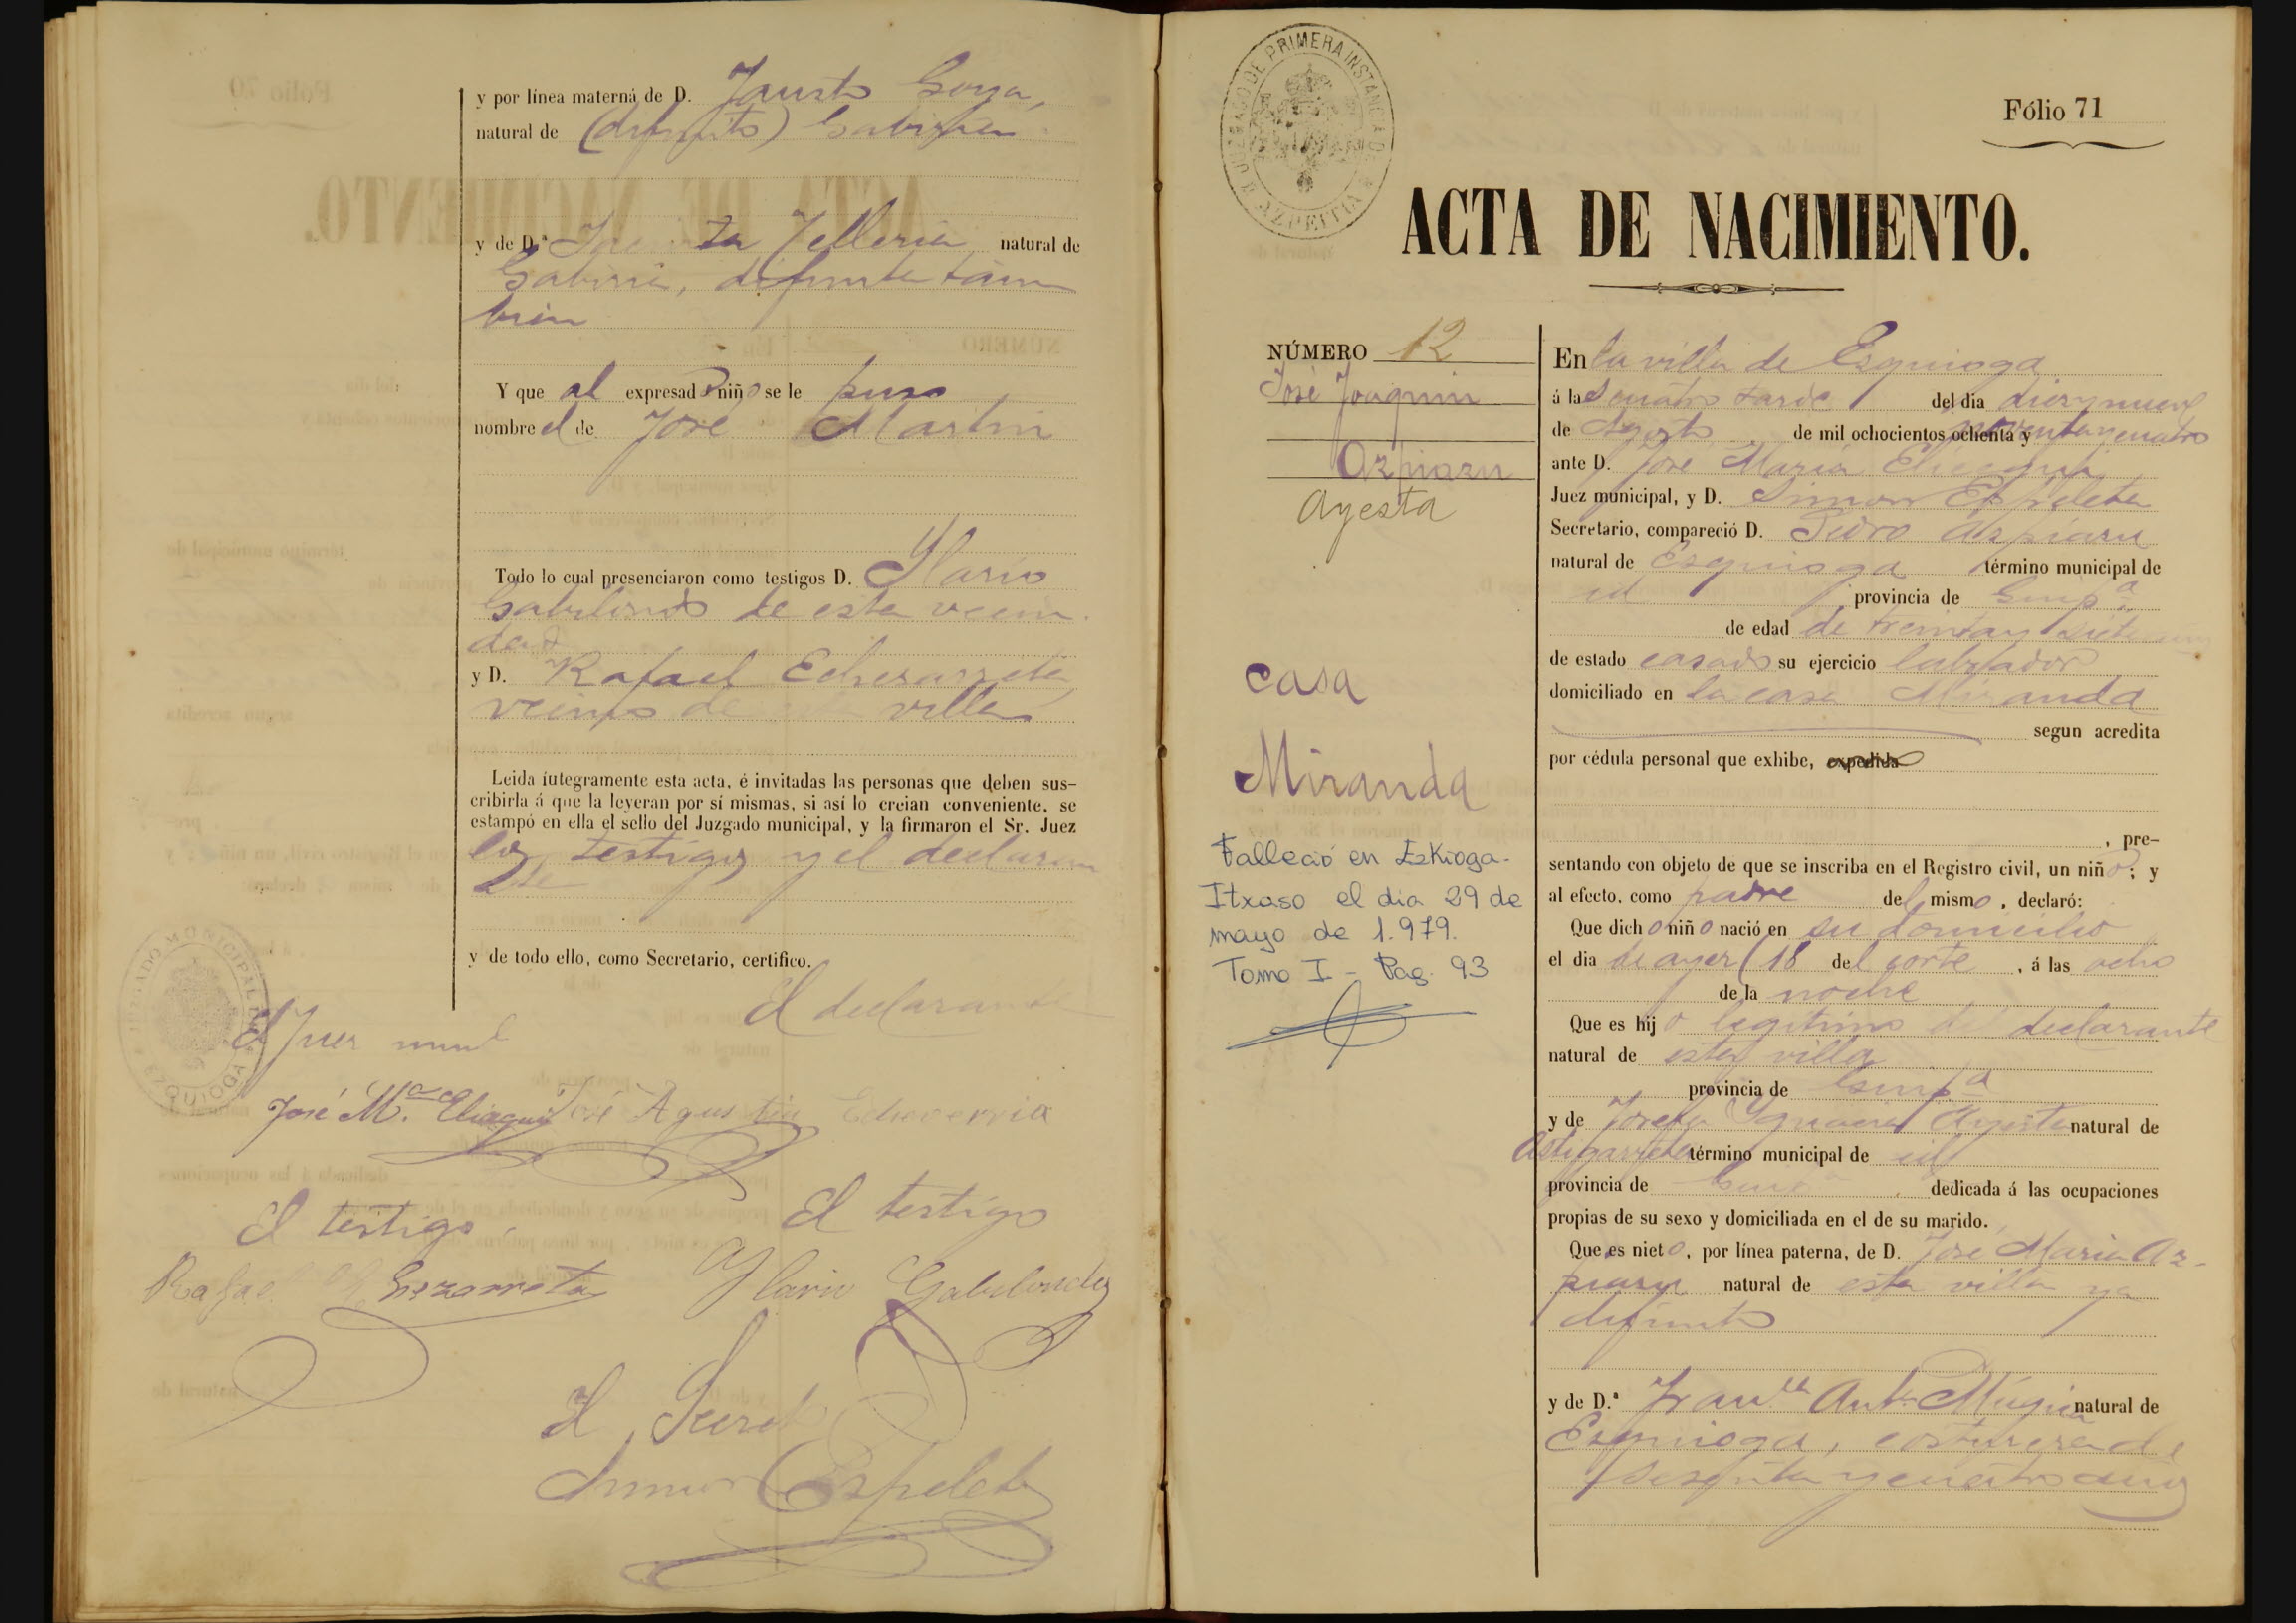 y por línea materna de D. Fausto Goya,
natural de (difunto) Gabiria
y de D.ª Telleria natural de
Gabiria, difunta tam
bien
Y que al expresado niño se le puso
nombre el de José Martin
Todo lo cual presenciaron como testigos D. Ylario
Gabilondo de esta vecin
dad
y D. Rafael Echezarreta
vecino de esta villa
Leida íntegramente esta acta, é invitadas las personas que deben sus-
cribirla á que la leyeran por sí mismas, si así lo creian conveniente, se
estampó en ella el sello del Juzgado municipal, y la firmaron el Sr. Juez
los testigos y el declaran
te
y de todo ello, como Secretario, certifico.
El declarante
El Juez munl
José M.ª José Agustin Echeverria
El testigo El testigo
Rafael Ylario Gabilondo
El Secret
Simon Espeleta
JUZGADO MUNICIPAL EZQUIOGA
JUZGADO DE PRIMERA INSTANCIA DE AZPEITIA
Fólio 71
ACTA DE NACIMIENTO.
NÚMERO 12
José Joaquin
Azpiazu
Ayesta
casa
Miranda
Falleció en Ezkioga-
Itxaso el dia 29 de
mayo de 1.979.
Tomo I - Pag. 93
En la villa de Ezquioga
á las cuatro tarde del dia diez y nueve
de Agosto de mil ochocientos ochenta y noventa y cuatro
ante D. José Maria
Juez municipal, y D. Simon Espeleta
Secretario, compareció D. Pedro Azpiazu
natural de Ezquioga término municipal de
id provincia de Guipª
de edad de treinta y siete
de estado casado su ejercicio labrador
domiciliado en la casa Miranda
segun acredita
por cédula personal que exhibe, expedida
, pre-
sentando con objeto de que se inscriba en el Registro civil, un niño; y
al efecto, como padre del mismo, declaró:
Que dicho niño nació en su domicilio
el dia de ayer (18 del corte, á las ocho
de la noche
Que es hijo legitimo del declarante
natural de esta villa
provincia de Guipª
y de Josefa Ygnacia Ayesta natural de
Astigarreta término municipal de id
provincia de Guipª, dedicada á las ocupaciones
propias de su sexo y domiciliada en el de su marido.
Que es nieto, por línea paterna, de D. José Maria Az-
piazu natural de esta villa ya
difunto
y de D.ª Fran.ca Ant.ª Múgica natural de
Ezquioga, costurera de
sesenta y cuatro años